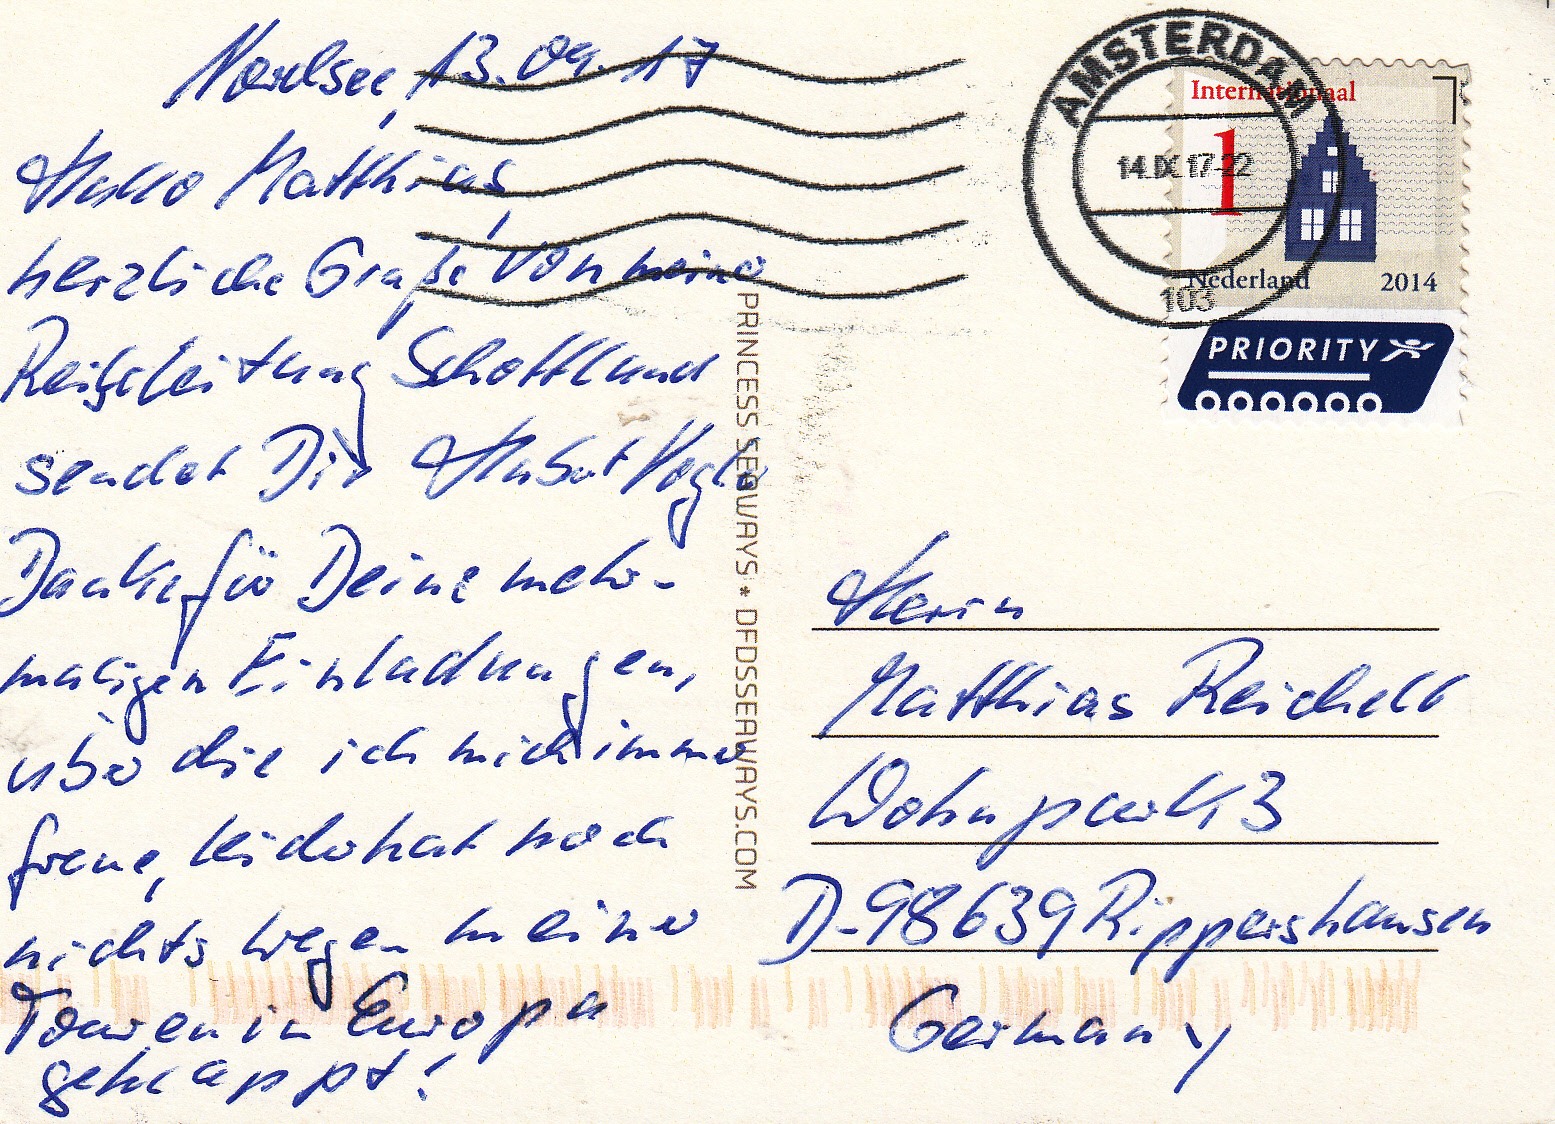 Nordsee, 13.09.17
Hallo Matthias,
herzliche Grüße von meiner
Reiseleitung Schottland
sendet Dir Hubert Vogler
Danke für Deine mehr-
maligen Einladungen,
über die ich mich immer
freue, leider hat noch
nichts wegen meiner
Touren in Europa
geklappt!
PRINCESS SEAWAYS * DFDSSEAWAYS.COM
AMSTERDAM
14.IX.17-22
103
Internationaal
1
Nederland 2014
PRIORITY
Herrn
Matthias Reichelt
Wohnpark 3
D-98639 Rippershausen
Germany